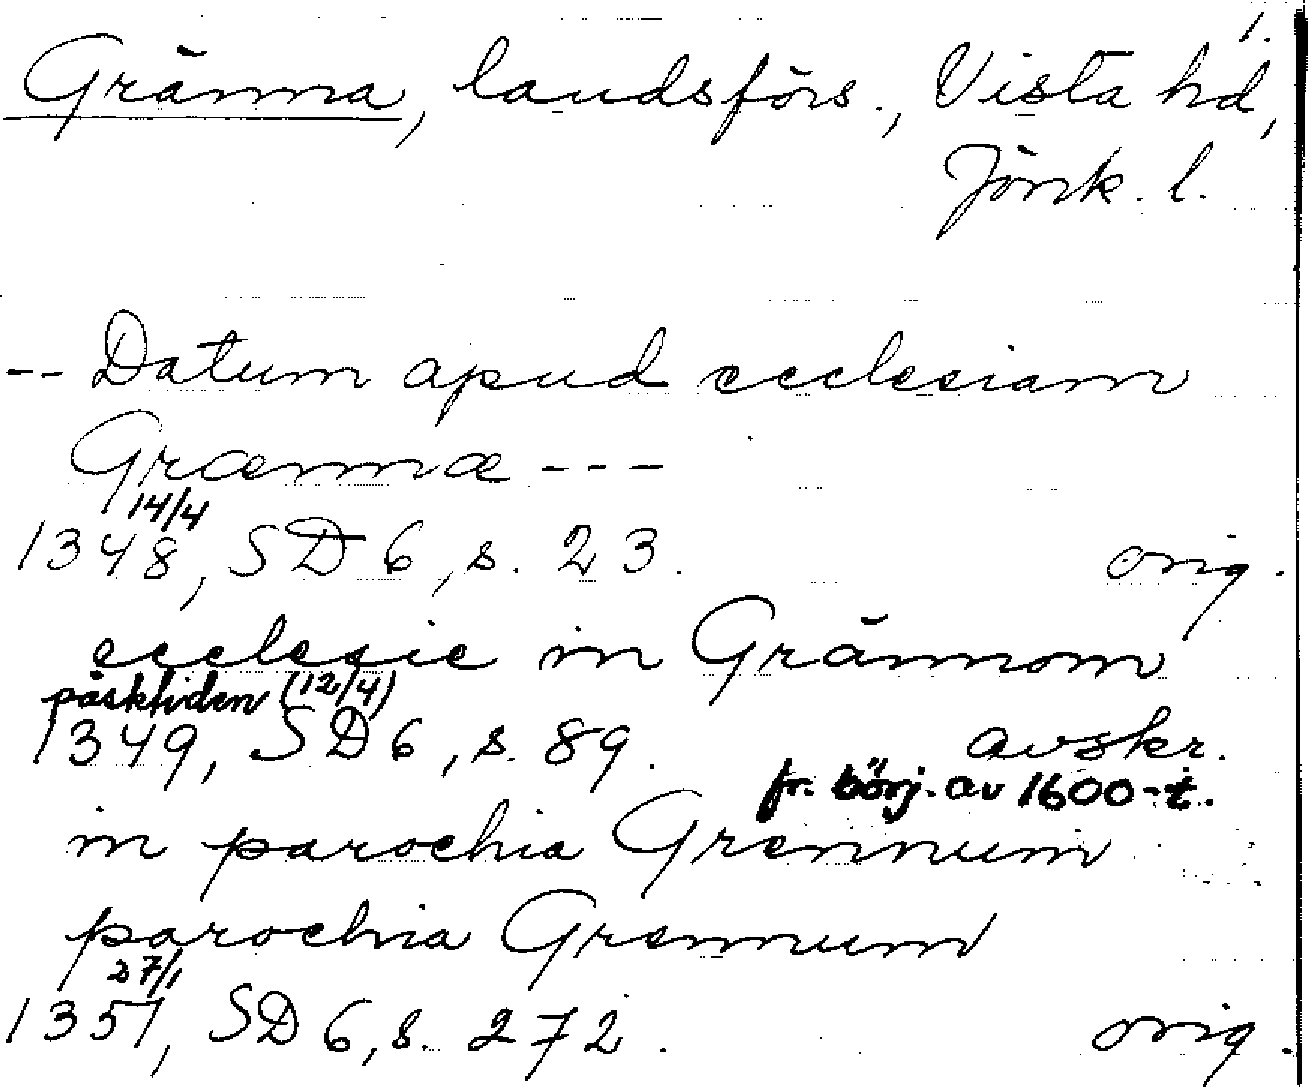 1.
Gränna, landsförs., Vista hd,
Jönk. l.
-- Datum apud ecclesiam
Grænnæ ---
14/4
1348, SD 6, s. 23. orig.
ecclesie in Grännom
påsktiden (12/4)
1349, SD 6, s. 89. avskr.
fr. börj. av 1600-t.
in parochia Grennum
parochia Grennum
27/1
1351, SD 6, s. 272. orig.